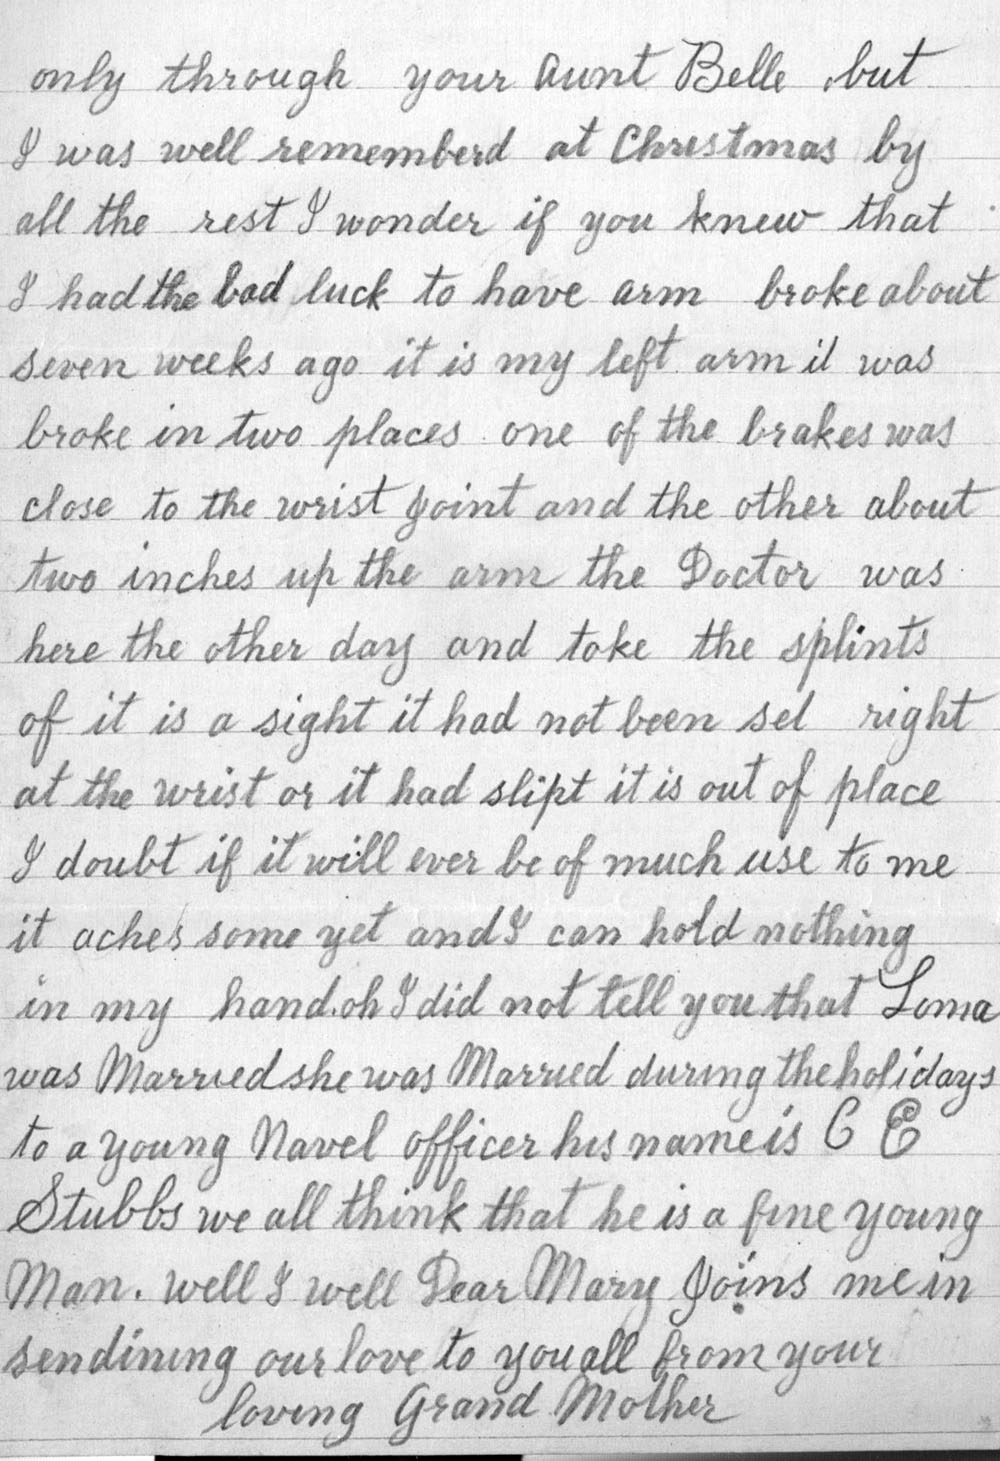 only through your Aunt Belle but
I was well rememberd at Christmas by
all the rest I wonder if you knew that
I had the bad luck to have arm broke about
seven weeks ago it is my left arm it was
broke in two places one of the brakes was
close to the wrist Joint and the other about
two inches up the arm the Doctor was
here the other day and toke the splints
of it is a sight it had not been set right
at the wrist or it had slipt it is out of place
I doubt if it will ever be of much use to me
it aches some yet and I can hold nothing
in my hand. oh I did not tell you that Loma
was Married she was Married during the holidays
to a young Navel officer his name is C E
Stubbs we all think that he is a fine young
Man. well I well Dear Mary Joins me in
sendining our love to you all from your
loving Grand Mother